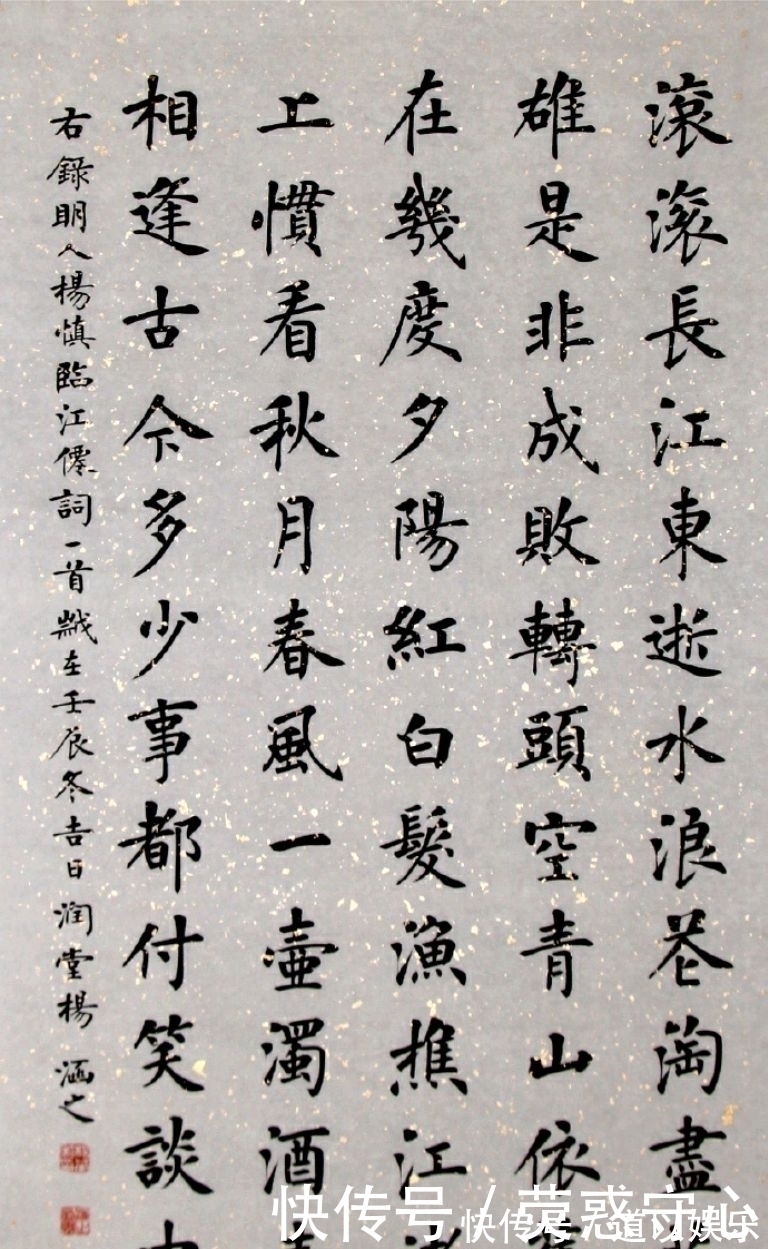 滾滚長江東逝水浪花淘盡
雄是非成敗轉頭空青山依
在幾度夕陽紅白髮漁樵江
上慣看秋月春風一壺濁酒
相逢古今多少事都付笑談
右錄明人楊慎臨江僊詞一首歲在壬辰冬吉日潤堂楊涵之
快传号 / 荧惑守心
快传号 / 道 娱乐